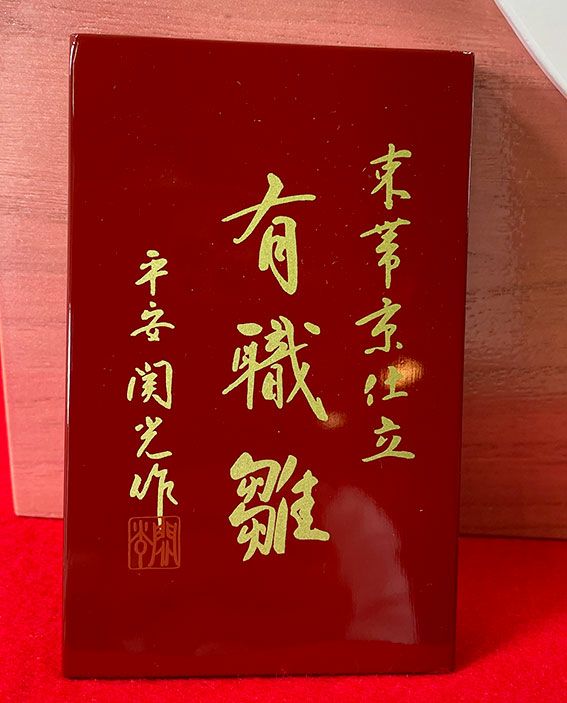 束帯京仕立
有職雛
平安関光作
関光